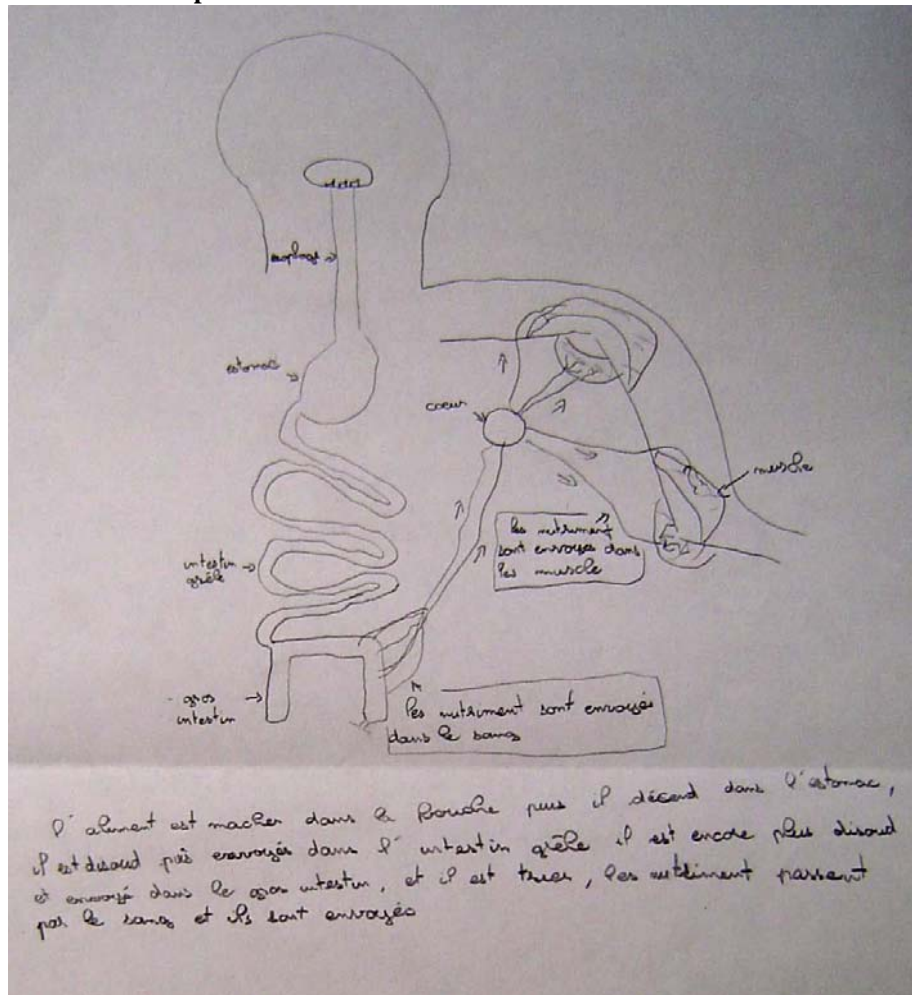 estomac
coeur
muscle
les nutriment
sont envoyés dans
les muscle
intestin
grêle
gros
intestin
les nutriment sont envoyés
dans le sang
l'aliment est macher dans la bouche puis il décend dans l'estomac,
il est disoud puis envoyés dans l'intestin grêle il est encore plus disoud
et envoyé dans le gros intestin, et il est trier, les nutriment passent
par le sang et ils sont envoyés